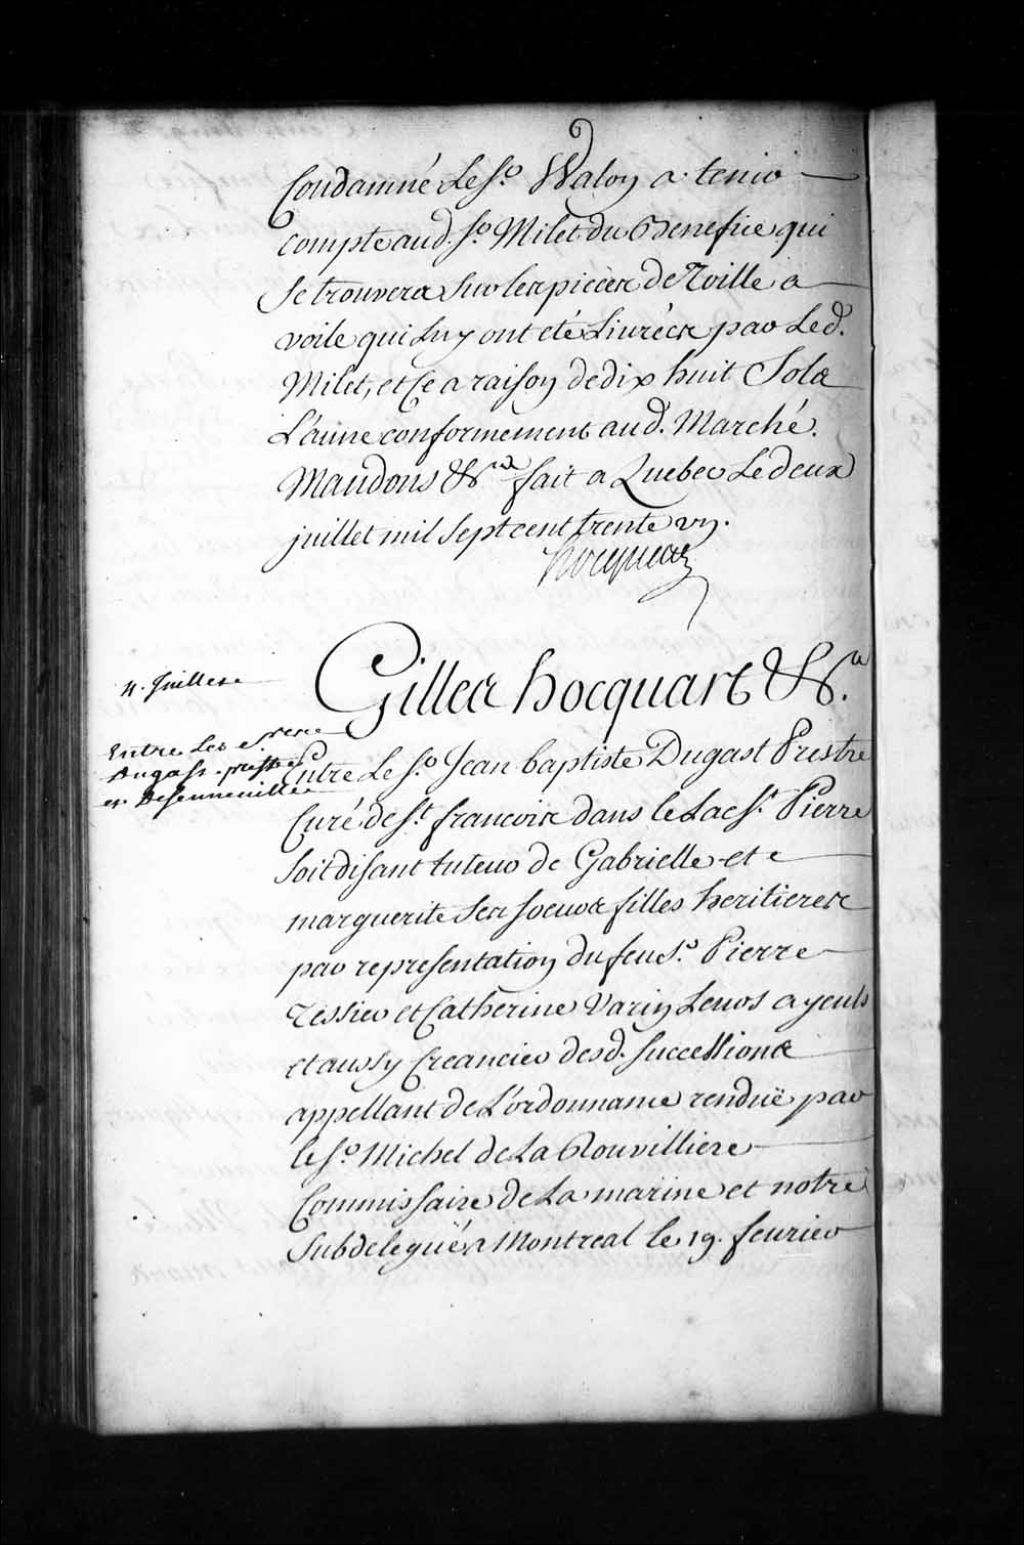 Condamné Le Sr. Walon a tenir
compte aud. Sr. Milet du Benefice qui
Se trouvera Sur les pieces de Toille a
voile qui Luy ont eté Livrées par Led.
Milet, et Ce a raison de dix huit Sols
L'aune conformement aud. Marché.
Mandons &ca fait a Quebec Le deux
juillet mil Sept cent trente un.
hocquart
4. Juillet
Gilles hocquart &ca.
Entre Les
Dugast prestre
et
Entre Le Sr. Jean baptiste Dugast Prestre
Curé de St. francois dans le Lac St. Pierre
Soit disant tuteur de Gabrielle et
marguerite Ses soeurs filles heritieres
par representation du feu Sr. Pierre
Tessier et Catherine Varin Leurs ayeuls
et aussy Creancier desd. Successions
appellant de L'ordonnance renduë par
le Sr. Michel de La Rouvilliere
Commissaire de La marine et notre
Subdelegué a Montreal le 19. feurier